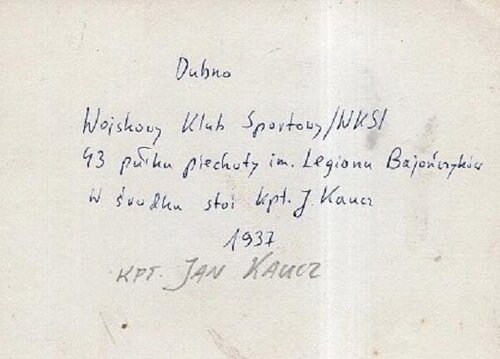 Dubno
Wojskowy Klub Sportowy/WKS/
43 pułku piechoty im. Legionu Bajończyków
W środku stoi kpt. J. Kaucz
1937
KPT. JAN KAUCZ